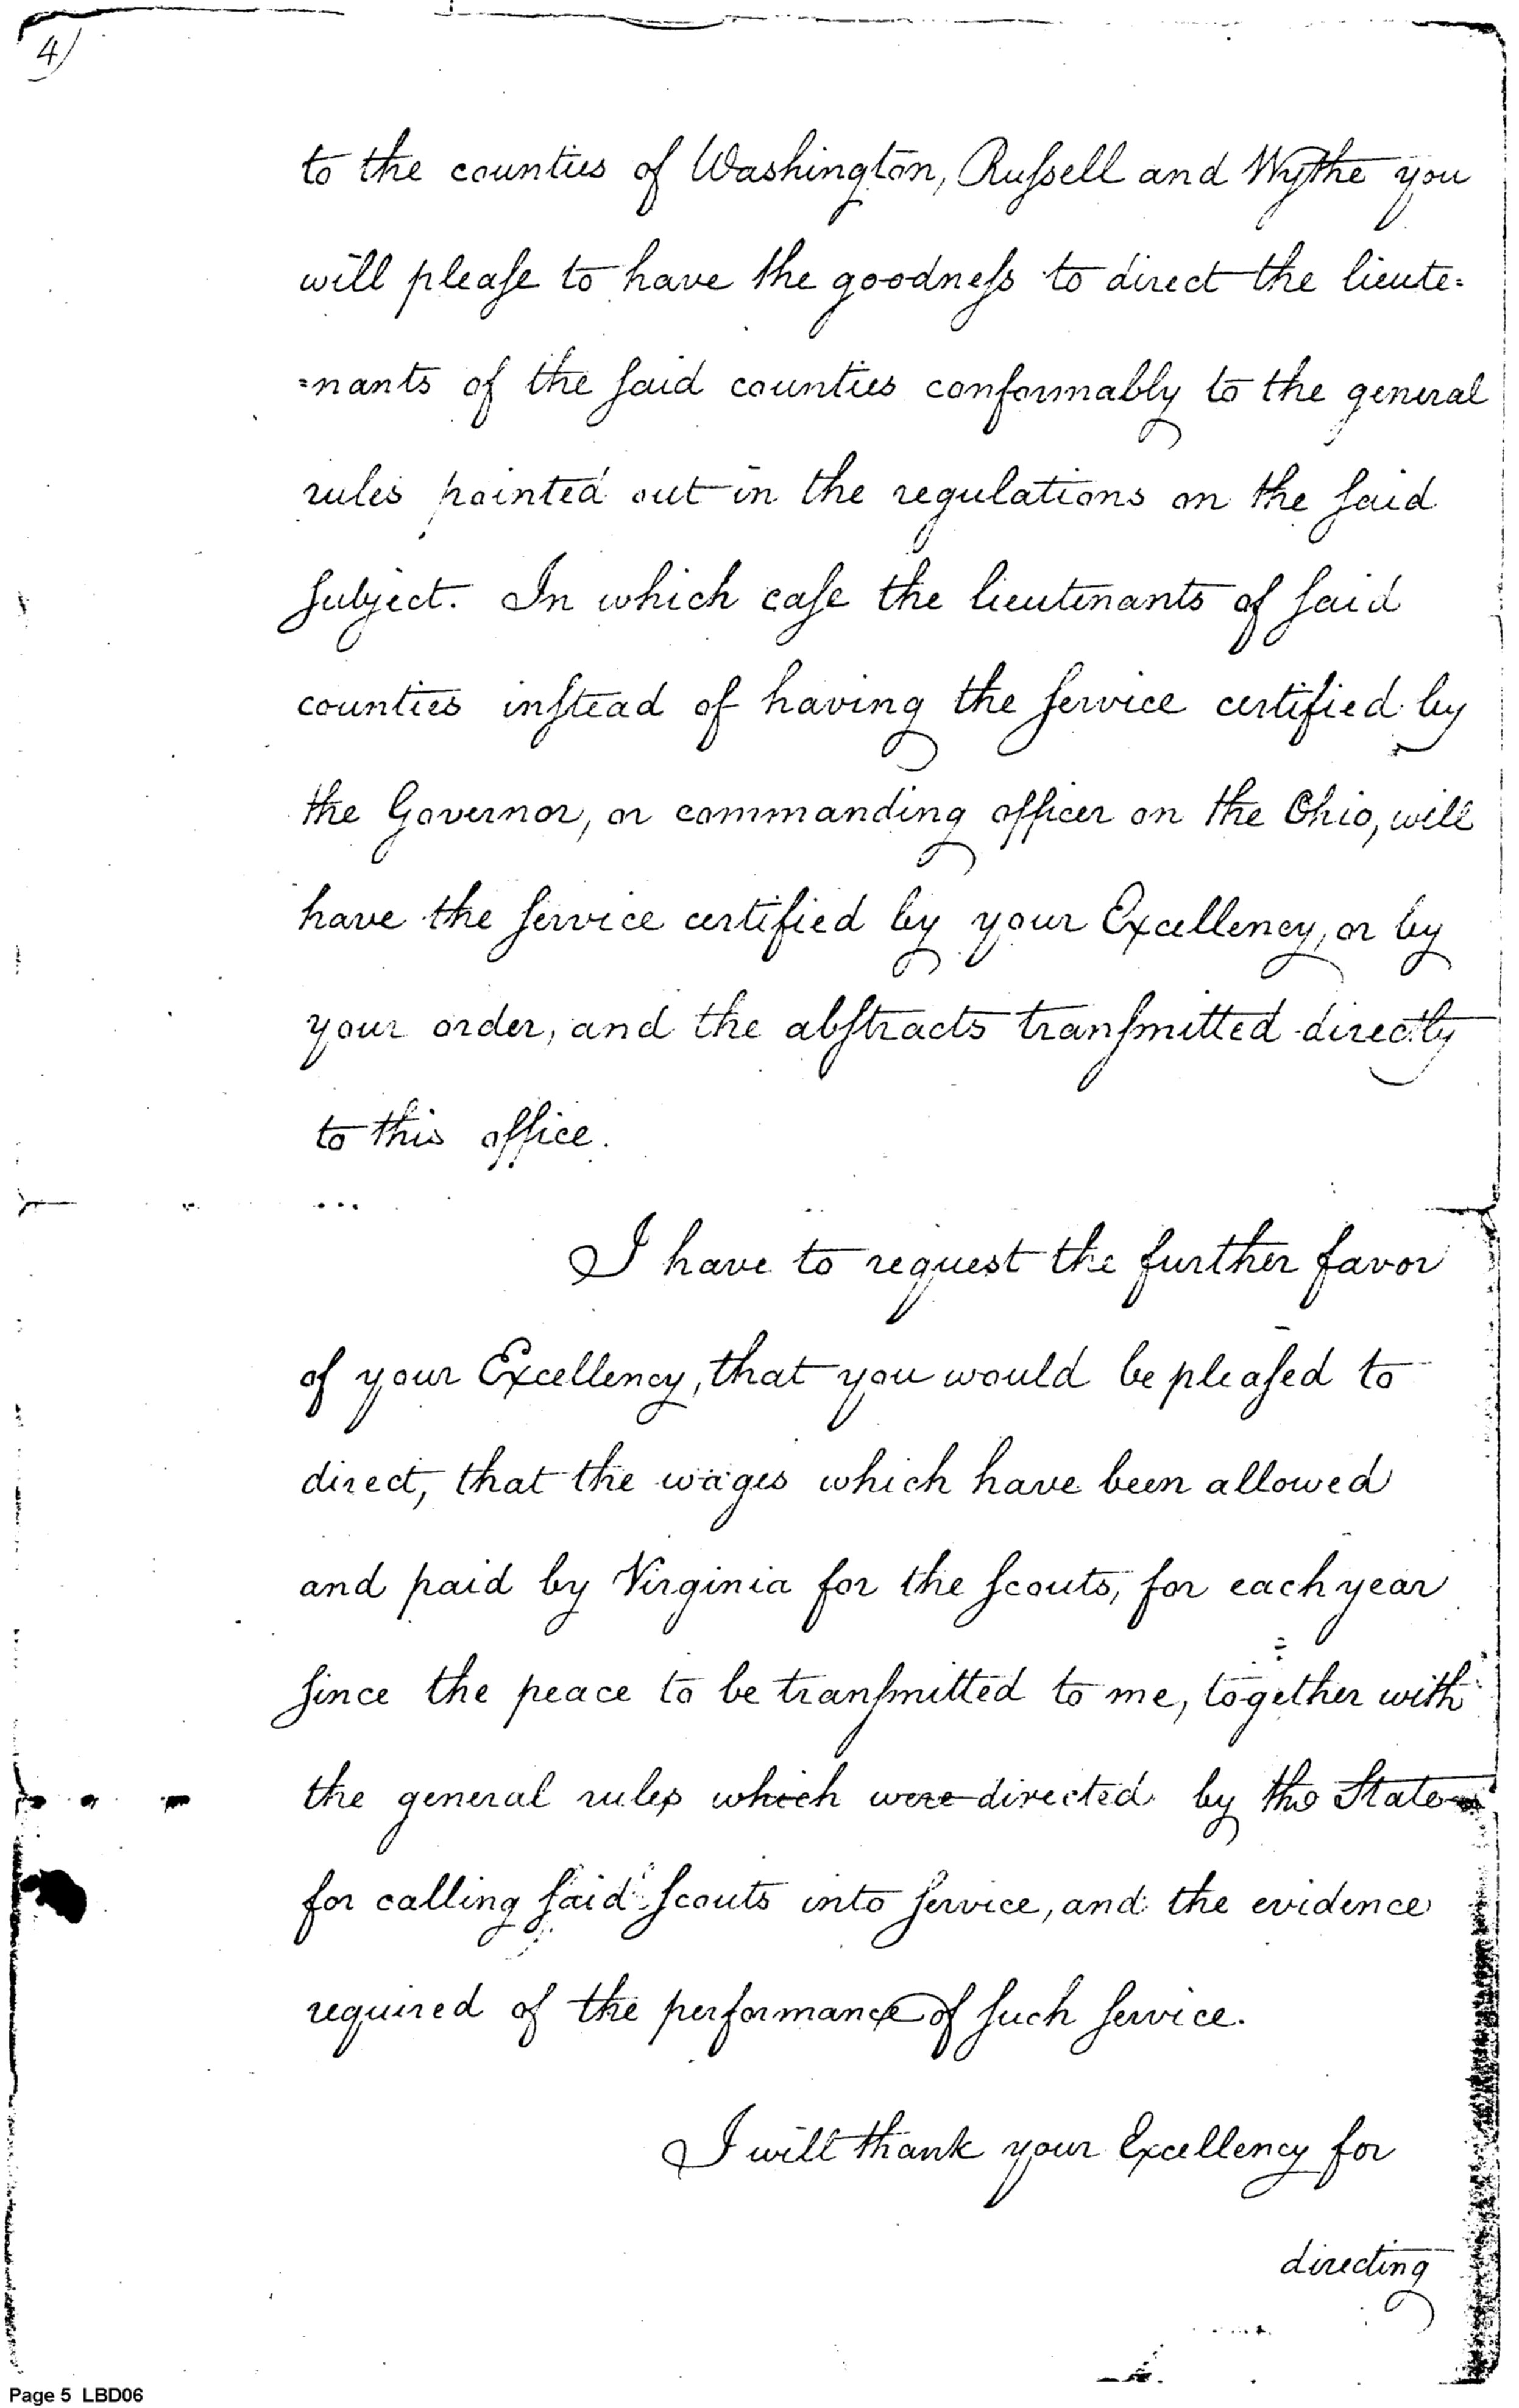 4)
to the counties of Washington, Ruſsell and Wythe you
will pleaſe to have the goodneſs to direct the lieute=
=nants of the ſaid counties conformably to the general
rules pointed out in the regulations on the ſaid
ſubject. In which caſe the lieutenants of ſaid
counties inſtead of having the ſervice certified by
the Governor, or commanding officer on the Ohio, will
have the ſervice certified by your Excellency, or by
your order, and the abſtracts tranſmitted directly
to this office.
I have to request the further favor
of your Excellency, that you would be pleaſed to
direct, that the wages which have been allowed
and paid by Virginia for the ſcouts, for each year
ſince the peace to be tranſmitted to me, together with
the general rules which were directed by the State
for calling ſaid ſcouts into ſervice, and the evidence
required of the performance of ſuch ſervice.
I will thank your Excellency for
directing
Page 5 LBD06